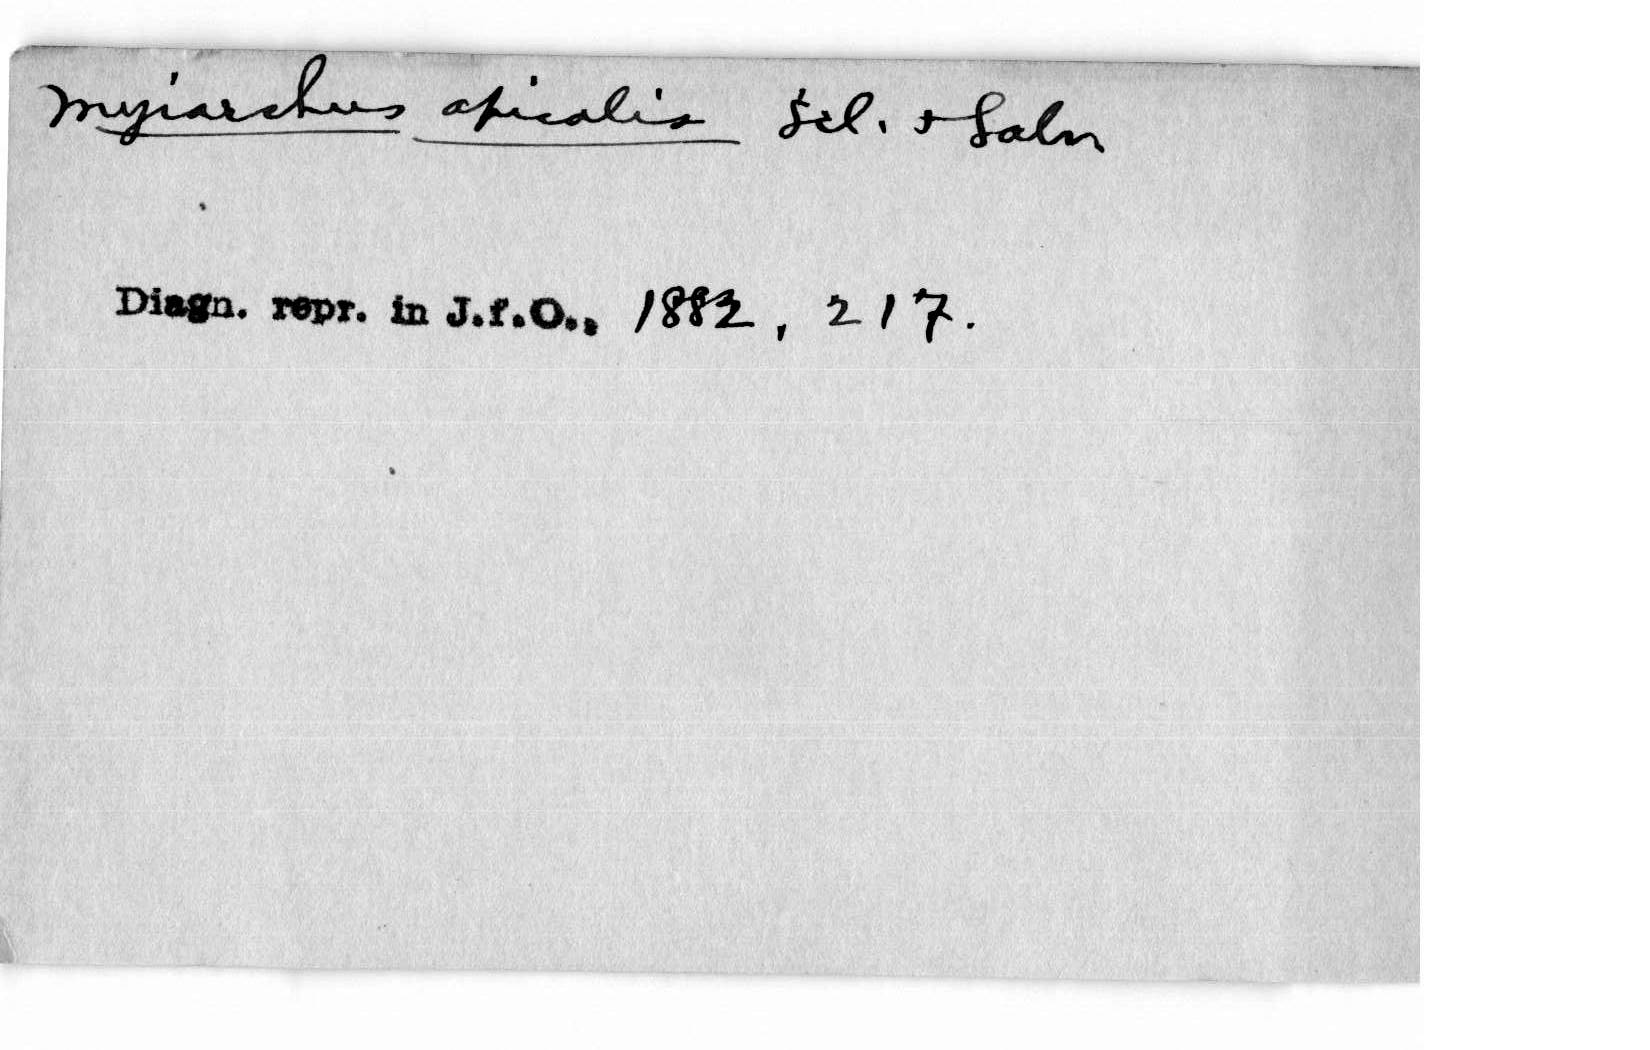 Myiarchus apicalis Scl. + Salv
Diagn. repr. in J.f.O., 1882, 217.